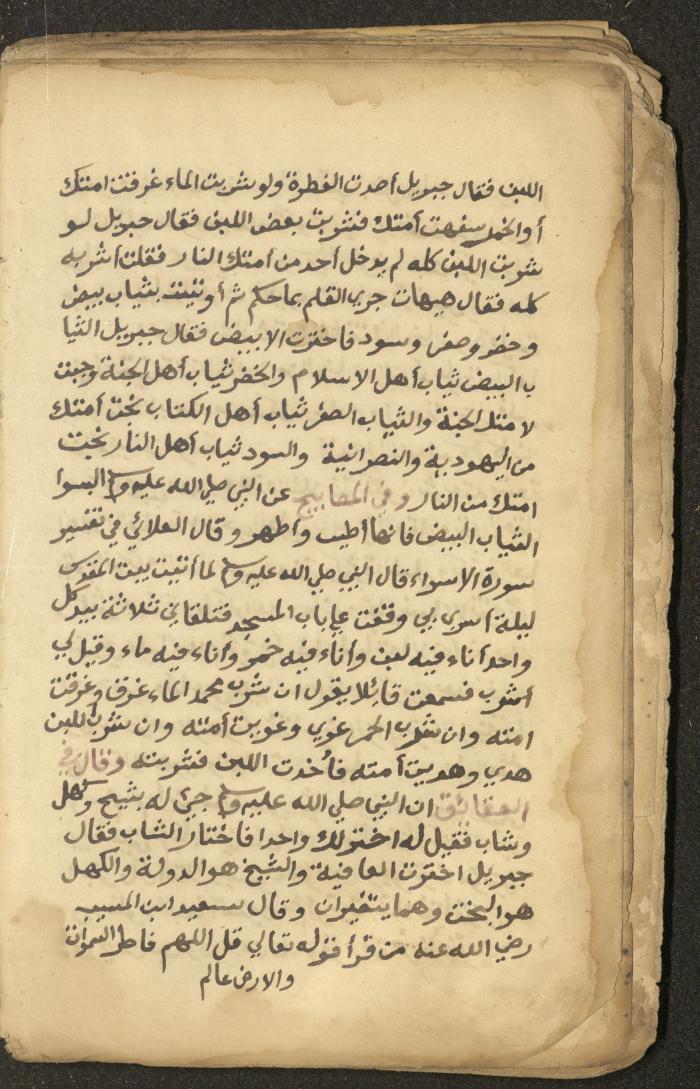 اللبن فقال جبريل أصدت الفطرة ولو شربت الماء غرقت امتك
أو الخمر سفهت أمتك فشربت بعض اللبن فقال جبريل لو
شربت اللبن كله لم يدخل أحد من أمتك النار فقلت أشربه
كله فقال هيهات جرى القلم بما حكم ثم أوتيت بثياب بيض
وخضر وصفر وسود فاخترت الابيض فقال جبريل الثيا
ب البيض ثياب أهل الاسلام والخضر ثياب أهل الجنة وجبت
لامتك الجنة والثياب الصفر ثياب أهل الكتاب نجت أمتك
من اليهودية والنصرانية والسود ثياب أهل النار نجت
امتك من النار وفي المصابيح عن النبي صلي الله عليه وسلم البسوا
الثياب البيض فانها أطيب وأطهر وقال العلائي في تفسير
سورة الاسراء قال النبي صلي الله عليه وسلم لما أتيت بيت المقدس
ليلة أسري بي وقفت علي باب المسجد فتلقاني ثلاثة بيد كل
واحد أناء فيه لبن وأناء فيه خمر وأناء فيه ماء وقيل لي
أشرب فسمعت قائلا يقول ان شرب محمد الماء غرق وغرقت
امته وان شرب الخمر غوي وغويت أمته وان شرب اللبن
هدي وهديت أمته فأخذت اللبن فشربته وقال في
الحقائق ان النبي صلي الله عليه وسلم جيئ له بشيخ وكهل
وشاب فقيل له اختر لك واحدا فاختار الشاب فقال
جبريل اخترت العافية والشيخ هو الدولة والكهل
هو البخت وهما يتغيران وقال سعيد ابن المسيب
رضي الله عنه من قرأ قوله تعالي قل اللهم فاطر السموات
والارض عالم